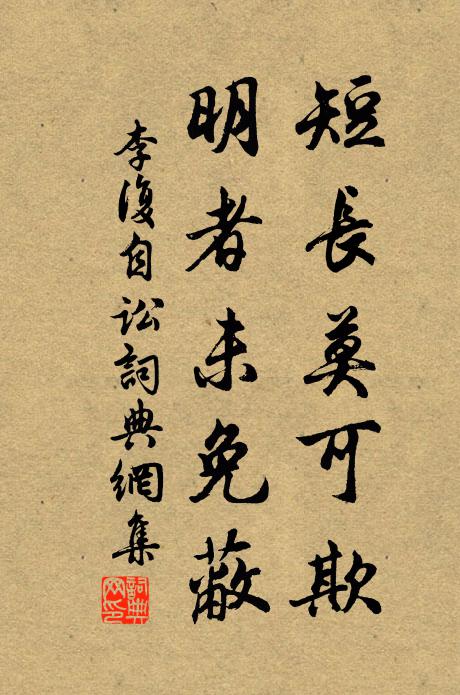 短長莫可欺
明者未免蔽
李復自訟詞典網集
詞典網印